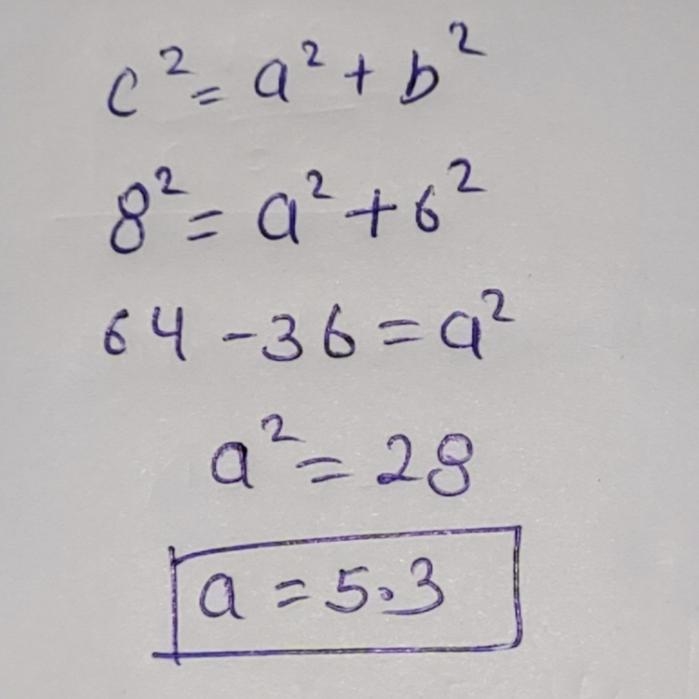 c² = a² + b²
8² = a² + 6²
64 - 36 = a²
a² = 28
a = 5.3